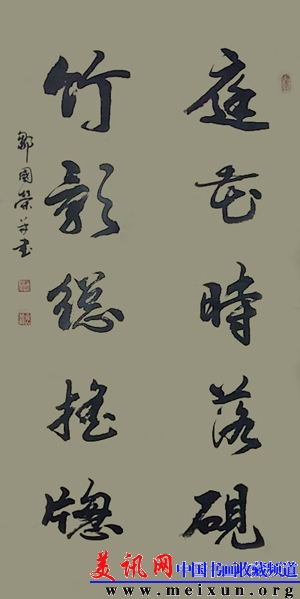 庭花時落硯
竹影緫搖牎
鄒國榮并書
美讯网 中国书画收藏频道
www.meixun.org